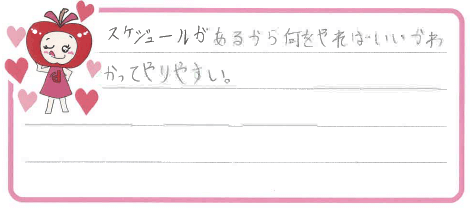 スケジュールがあるから何をやればいいかわ
かってやりやすい。